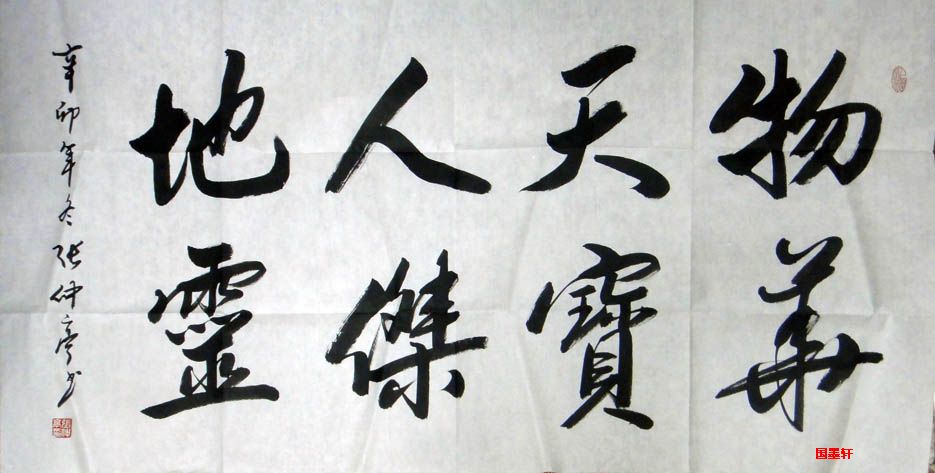 物華
天寶
人傑
地靈
辛卯年冬张仲亭书
国墨轩